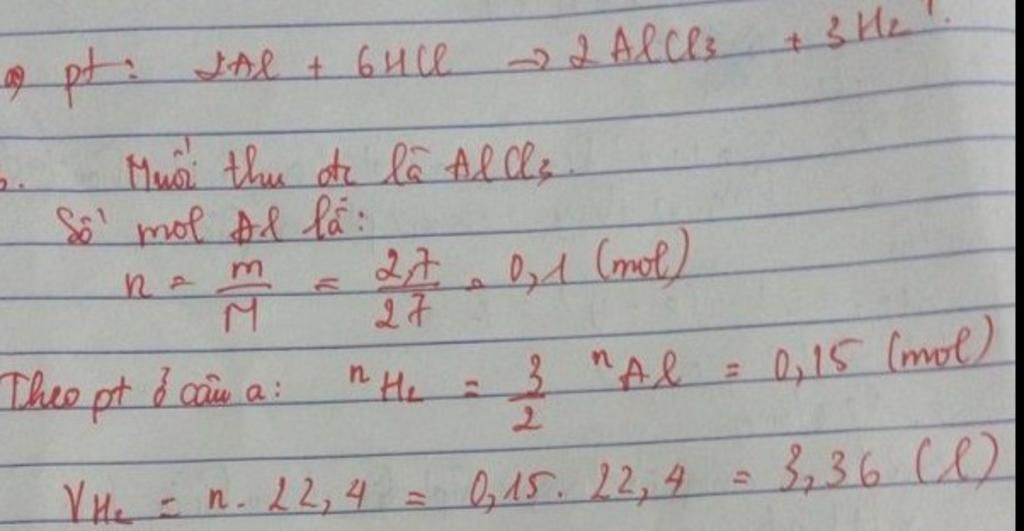 a) pt: 2Al + 6HCl → 2AlCl₃ + 3H₂↑.
b. Muối thu đc là AlCl₃.
Số mol Al là:
n = m/M = 2,7/27 = 0,1 (mol)
Theo pt ở câu a: nH₂ = 3/2 nAl = 0,15 (mol)
VH₂ = n. 22,4 = 0,15. 22,4 = 3,36 (l)